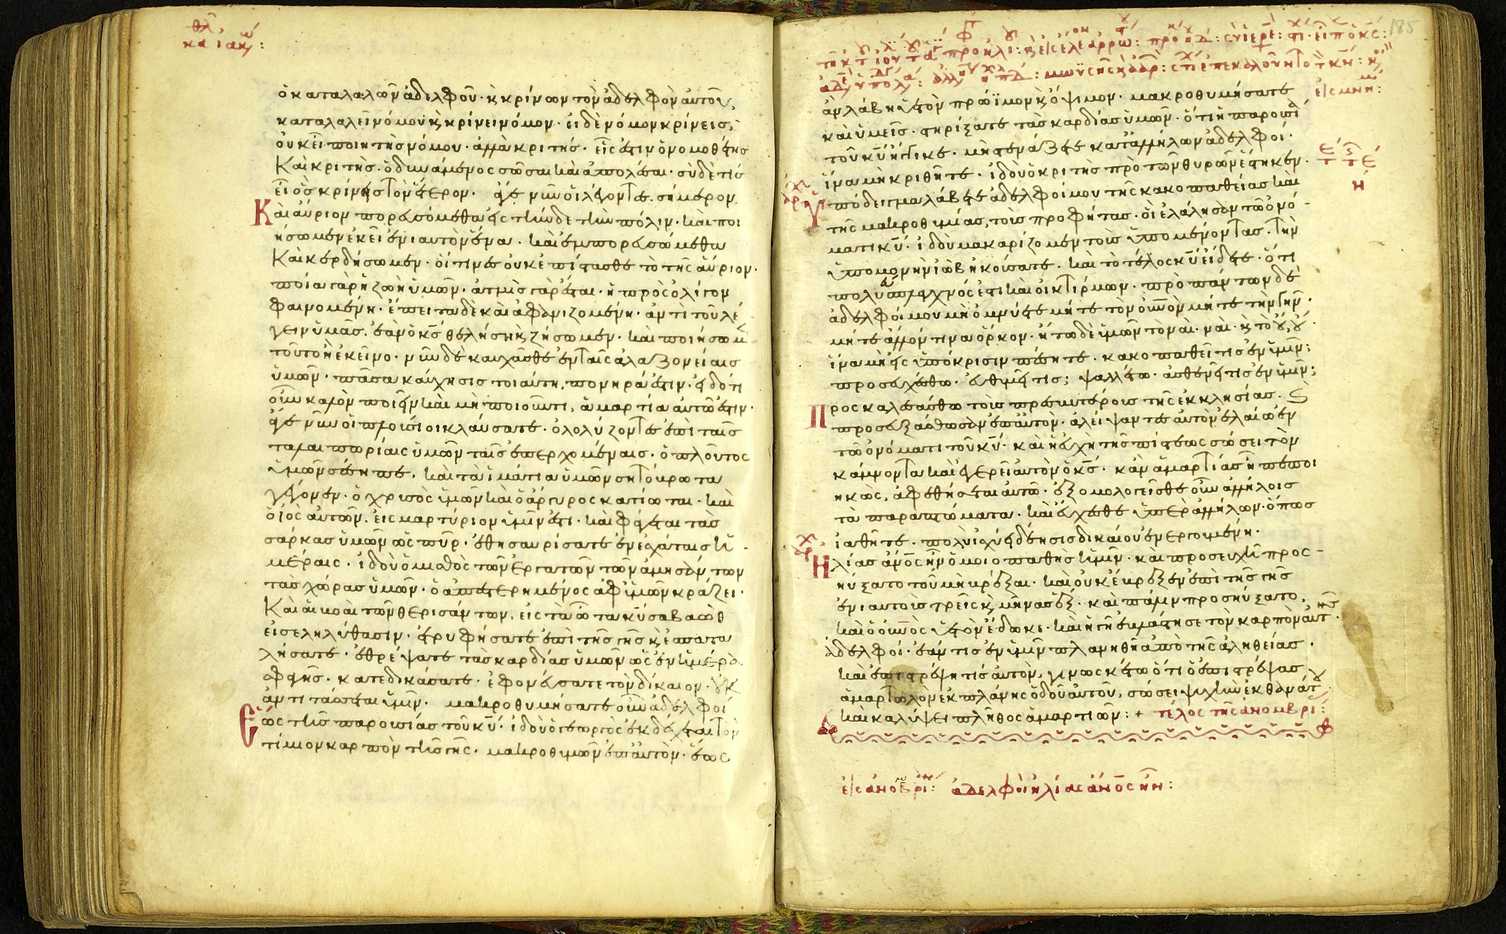 ὁ καταλαλῶν ἀδελφοῦ· ἢ κρίνων τὸν ἀδελφὸν αὐτοῦ,
καταλαλεῖ νόμου καὶ κρίνει νόμον· εἰ δὲ νόμον κρίνεις,
οὐκ εἶ ποιητὴς νόμου· ἀλλὰ κριτής· εἷς ἐστιν ὁ νομοθέτης
Καὶ κριτὴς· ὁ δυνάμενος σῶσαι καὶ ἀπολέσαι· σὺ δὲ τίς
εἶ ὃς κρίνεις τὸν ἕτερον· ἄγε νῦν οἱ λέγοντες σήμερον
Καὶ αὔριον πορευσόμεθα εἰς τήνδε τὴν πόλιν· καὶ ποι
ήσωμεν ἐκεῖ ἐνιαυτὸν ἕνα· καὶ ἐμπορευσώμεθα
Καὶ κερδήσωμεν· οἵτινες οὐκ ἐπίστασθε τὸ τῆς αὔριον·
ποία γὰρ ἡ ζωὴ ὑμῶν· ἀτμὶς γὰρ ἔσται· ἡ πρὸς ὀλίγον
φαινομένη· ἔπειτα δὲ καὶ ἀφανιζομένη· ἀντὶ τοῦ λέ
γειν ὑμᾶς· ἐὰν ὁ κς θελήσῃ καὶ ζήσωμεν· καὶ ποιήσωμεν
τοῦτο ἢ ἐκεῖνο· νῦν δὲ καυχᾶσθε ἐν ταῖς ἀλαζονείαις
ὑμῶν· πᾶσα καύχησις τοιαύτη, πονηρά ἐστιν· εἰδότι
οὖν καλὸν ποιεῖν καὶ μὴ ποιοῦντι, ἁμαρτία αὐτῷ ἐστιν·
ἄγε νῦν οἱ πλούσιοι κλαύσατε· ὀλολύζοντες ἐπὶ ταῖς
ταλαιπωρίαις ὑμῶν ταῖς ἐπερχομέναις· ὁ πλοῦτος
ὑμῶν σέσηπε· καὶ τὰ ἱμάτια ὑμῶν σητόβρωτα
γέγονεν· ὁ χρυσὸς ὑμῶν καὶ ὁ ἄργυρος κατίωται· καὶ
ὁ ἰὸς αὐτῶν· εἰς μαρτύριον ὑμῖν ἔσται· καὶ φάγεται τὰς
σάρκας ὑμῶν ὡς πῦρ· ἐθησαυρίσατε ἐν ἐσχάταις ἡ
μέραις· ἰδοὺ ὁ μισθὸς τῶν ἐργατῶν τῶν ἀμησάντων
τὰς χώρας ὑμῶν· ὁ ἀπεστερημένος ἀφ' ὑμῶν κράζει·
Καὶ αἱ βοαὶ τῶν θερισάντων, εἰς τὰ ὦτα κυ σαβαὼθ
εἰσεληλύθασιν· ἐτρυφήσατε ἐπὶ τῆς γῆς καὶ ἐσπατα
λήσατε· ἐθρέψατε τὰς καρδίας ὑμῶν ὡς ἐν ἡμέρᾳ
σφαγῆς· κατεδικάσατε· ἐφονεύσατε τὸν δίκαιον· οὐκ
ἀντιτάσσεται ὑμῖν· μακροθυμήσατε οὖν ἀδελφοί
ἕως τῆς παρουσίας τοῦ κυ· ἰδοὺ ὁ γεωργὸς ἐκδέχεται τὸν
τίμιον καρπὸν τῆς γῆς· μακροθυμῶν ἐπ' αὐτὸν· ἕως
185
ἂν λάβῃ ὑετὸν πρώϊμον καὶ ὄψιμον· μακροθυμήσατε
καὶ ὑμεῖς· στηρίξατε τὰς καρδίας ὑμῶν· ὅτι ἡ παρουσία
τοῦ κυ ἤγγικε· μὴ στενάζετε κατ' ἀλλήλων ἀδελφοί·
ἵνα μὴ κριθῆτε· ἰδοὺ ὁ κριτὴς πρὸ τῶν θυρῶν ἕστηκεν·
ὑπόδειγμα λάβετε ἀδελφοί μου τῆς κακοπαθείας καὶ
τῆς μακροθυμίας, τοὺς προφήτας· οἳ ἐλάλησαν τῷ ὀνό-
ματι κυ· ἰδοὺ μακαρίζομεν τοὺς ὑπομένοντας· τὴν
ὑπομονὴν ἰὼβ ἠκούσατε· καὶ τὸ τέλος κυ εἴδετε· ὅτι
πολύσπλαγχνός ἐστι καὶ οἰκτίρμων· πρὸ πάντων δὲ
ἀδελφοί μου μὴ ὀμνύετε μήτε τὸν οὐνὸν μήτε τὴν γῆν·
μήτε ἄλλόν τινα ὅρκον· ἤτω δὲ ὑμῶν τὸ ναὶ· ναὶ· καὶ τὸ οὔ, οὔ·
ἵνα μὴ εἰς ὑπόκρισιν πέσητε· κακοπαθεῖ τις ἐν ὑμῖν;
προσευχέσθω· εὐθυμεῖ τις; ψαλλέτω· ἀσθενεῖ τις ἐν ὑμῖν;
Προσκαλεσάσθω τοὺς πρεσβυτέρους τῆς ἐκκλησίας· καὶ
προσευξάσθωσαν ἐπ' αὐτὸν· ἀλείψαντες αὐτὸν ἐλαίῳ ἐν
τῷ ὀνόματι τοῦ κυ· καὶ ἡ εὐχὴ τῆς πίστεως σώσει τὸν
κάμνοντα καὶ ἐγερεῖ αὐτὸν ὁ κς· κἂν ἁμαρτίας ᾖ πεποι
ηκὼς, ἀφεθήσεται αὐτῷ· ἐξομολογεῖσθε οὖν ἀλλήλοις
τὰ παραπτώματα· καὶ εὔχεσθε ὑπὲρ ἀλλήλων· ὅπως
ἰαθῆτε· πολὺ ἰσχύει δέησις δικαίου ἐνεργουμένη·
Ἠλίας ἀνος ἦν ὁμοιοπαθὴς ἡμῖν· καὶ προσευχῇ προσ-
ηύξατο τοῦ μὴ βρέξαι· καὶ οὐκ ἔβρεξεν ἐπὶ τῆς γῆς
ἐνιαυτοὺς τρεῖς καὶ μῆνας ἕξ· καὶ πάλιν προσηύξατο,
καὶ ὁ οὐνὸς ὑετὸν ἔδωκε· καὶ ἡ γῆ ἐβλάστησε τὸν καρπὸν αὐτῆς·
ἀδελφοί· ἐάν τις ἐν ὑμῖν πλανηθῇ ἀπὸ τῆς ἀληθείας·
καὶ ἐπιστρέψῃ τίς αὐτὸν, γινωσκέτω ὅτι ὁ ἐπιστρέψας
ἁμαρτωλὸν ἐκ πλάνης ὁδοῦ αὐτοῦ, σώσει ψυχὴν ἐκ θανάτου
καὶ καλύψει πλῆθος ἁμαρτιῶν: + τέλος τῆς ἀνομβρί:
εἰς ἀνομβρί: ἀδελφοὶ ἠλίας ἀνος ἦν: